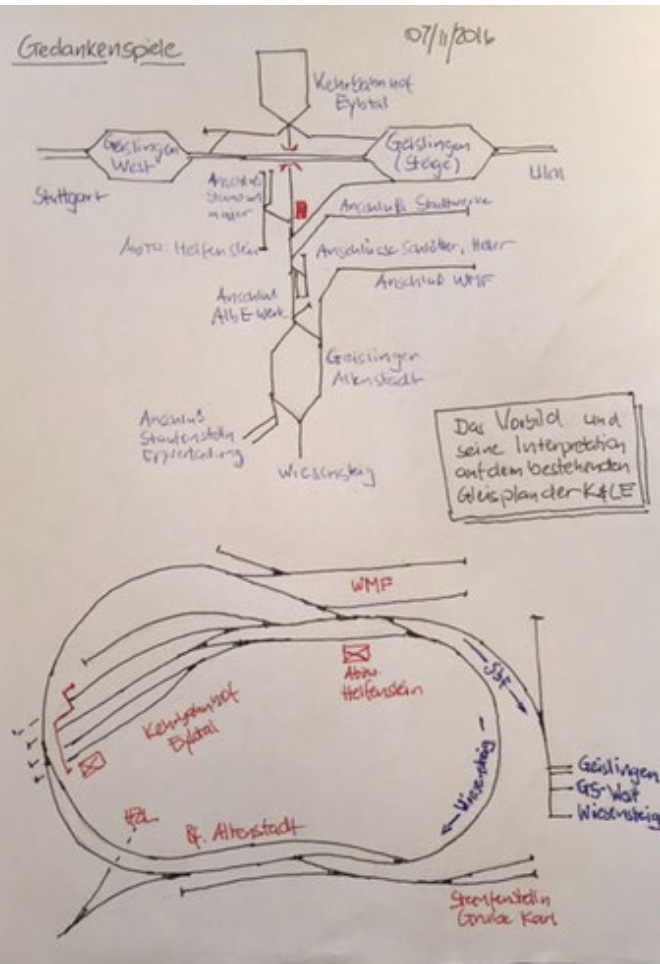 Gedankenspiele
07/11/2016
Kehrbahnhof
Eybtal
Geislingen
West
Geislingen
(Steige)
Stuttgart
Ulm
Anschluß
Anschluß Stadtwerke
Abzw. Helfenstein
Anschlüsse
Anschluß WMF
Anschluß
Alb E-Werk
Geislingen
Altenstadt
Anschluß
Wiesensteig
Das Vorbild und
seine Interpretation
auf dem bestehenden
Gleisplan der K&LE
WMF
Abzw.
Helfenstein
Sbf
Kehrbahnhof
Eybtal
Wiesensteig
Geislingen
GS-West
Wiesensteig
Bf. Altenstadt
Grube Karl